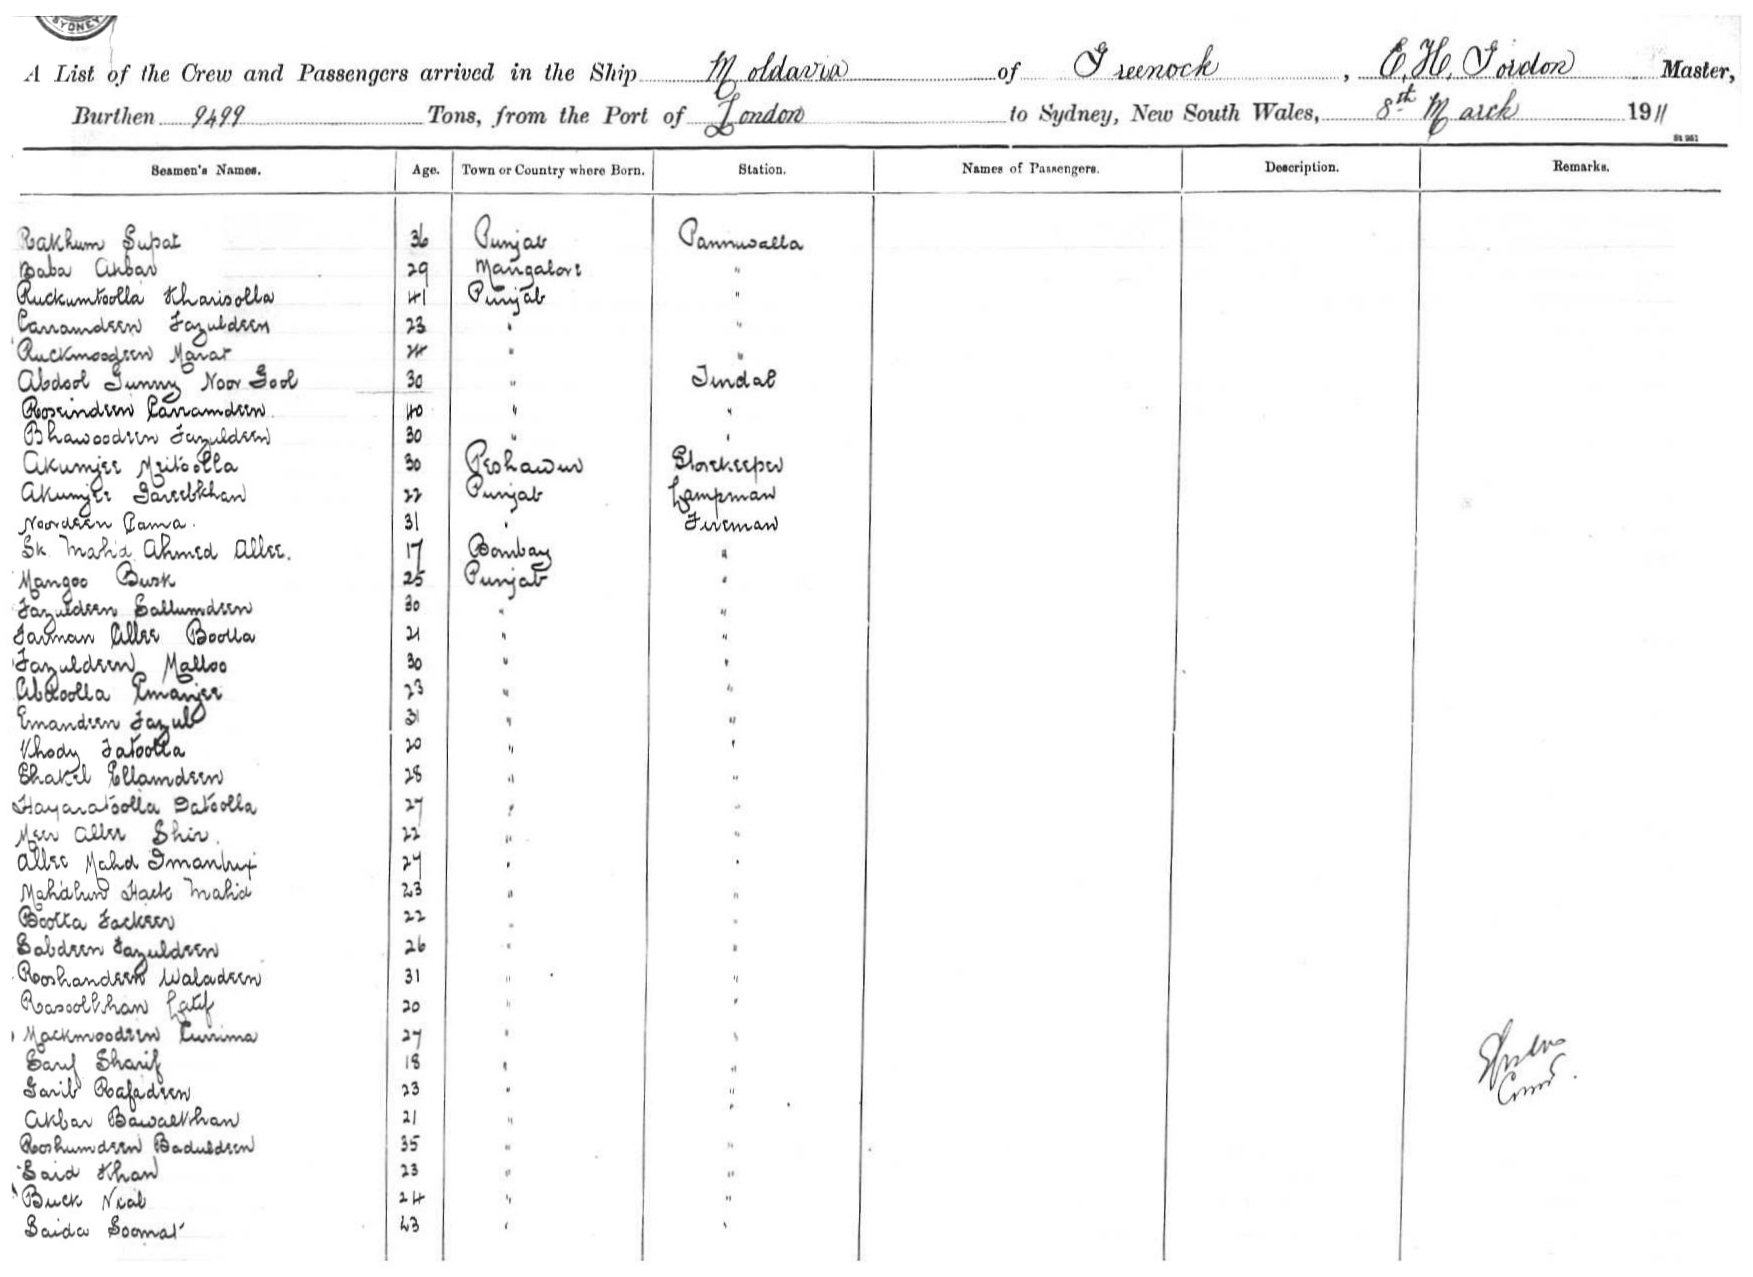 SYDNEY
A List of the Crew and Passengers arrived in the Ship Moldavia of Greenock, E. H. Gordon Master,
Burthen 9499 Tons, from the Port of London to Sydney, New South Wales, 8th March 1911
Seamen's Names. Age. Town or Country where Born. Station. Names of Passengers. Description. Remarks.
Rakhum Supat 36 Punjab Panniwalla
Baba Akbar 29 Mangalore "
Ruckumtoolla Kharisolla 41 Punjab "
Carramdeen Fazuldeen 23 " "
Ruckmoodeen Marat 24 " "
Abdool Gunny Noor Gool 30 " Tindal
Roseindeen Carramdeen 40 " "
Bhawoodeen Fazuldeen 30 " "
Akumjee Meitoolla 30 Peshawur Storekeeper
Akumjee Gareebkhan 22 Punjab Lampman
Noordeen Cama. 31 " Fireman
Sk Mahd Ahmed Allee. 17 Bombay "
Mangoo Busk 25 Punjab "
Fazuldeen Sallumdeen 30 " "
Farman Allee Boolla 21 " "
Fazuldeen Malloo 30 " "
Abdoolla Emanjee 23 " "
Emandeen Fazul 31 " "
Khody Fatoolla 20 " "
Shakel Ellamdeen 28 " "
Hayaratoolla Satoolla 27 " "
Meer Allee Shir. 22 " "
Allee Mahd Imanbux 27 " "
Hack Mahd 23 " "
Bootta Fackeer 22 " "
Sabdeen Fazuldeen 26 " "
Roshandeen Waladeen 31 " "
Rasoolkhan Latif 20 " "
Mackmoodeen Currima 27 " "
Sarif Sharif 18 " "
Garib Rafadeen 23 " "
Akbar Bawalkhan 21 " "
Roshumdeen Baduldeen 35 " "
Said Khan 23 " "
Buck Neal 24 " "
Saida Soomal 43 " "